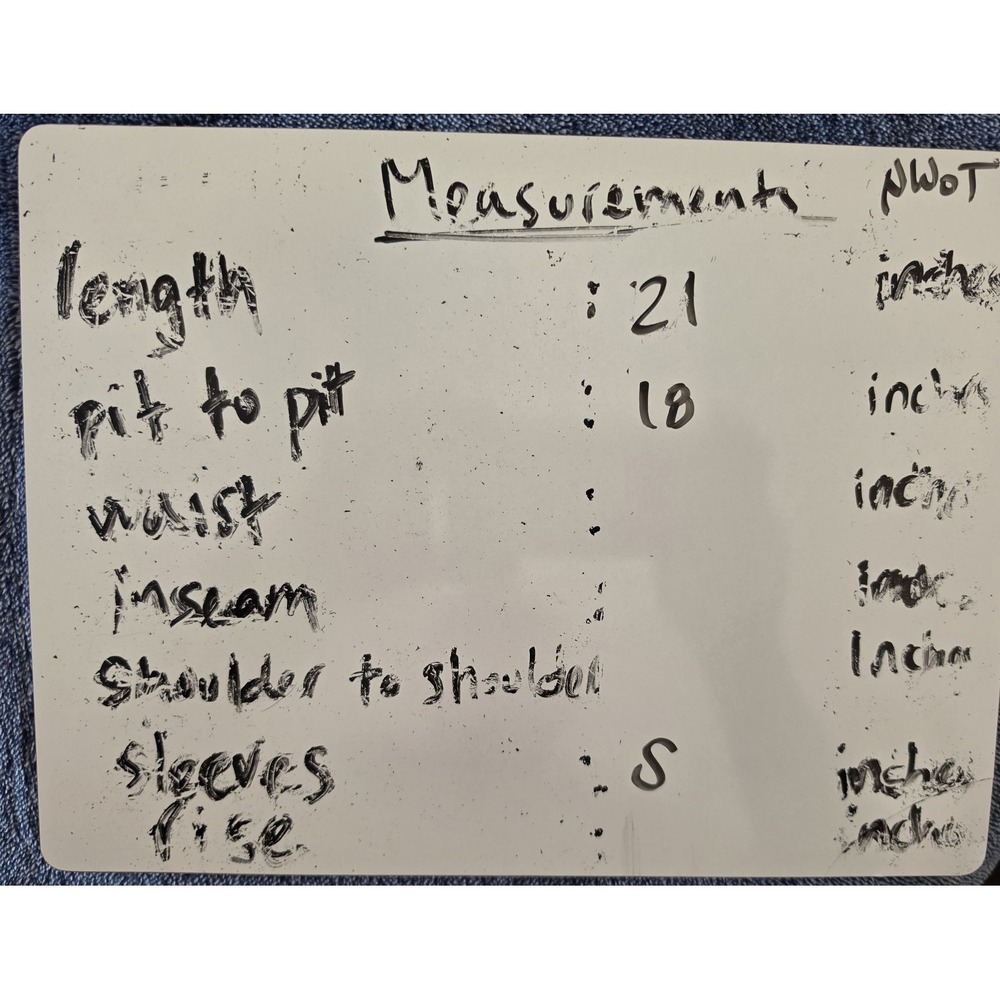 Measurements NWOT
length : 21 inches
pit to pit : 18 inches
waist : inches
inseam : inc.
shoulder to shoulder Inches
sleeves : 5 inches
rise : inches